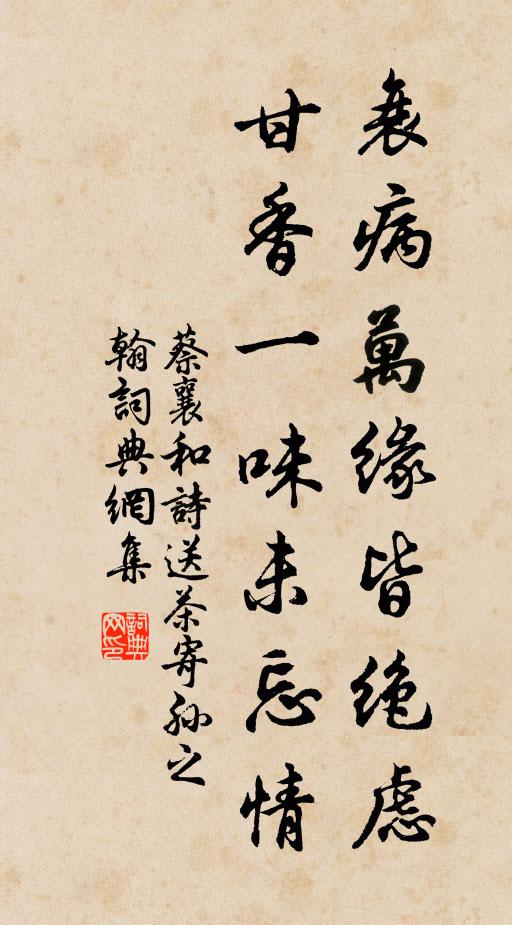 衰病萬緣皆絶慮
甘香一味未忘情
蔡襄和詩送茶寄孫之
翰詞典網集
詞典网印